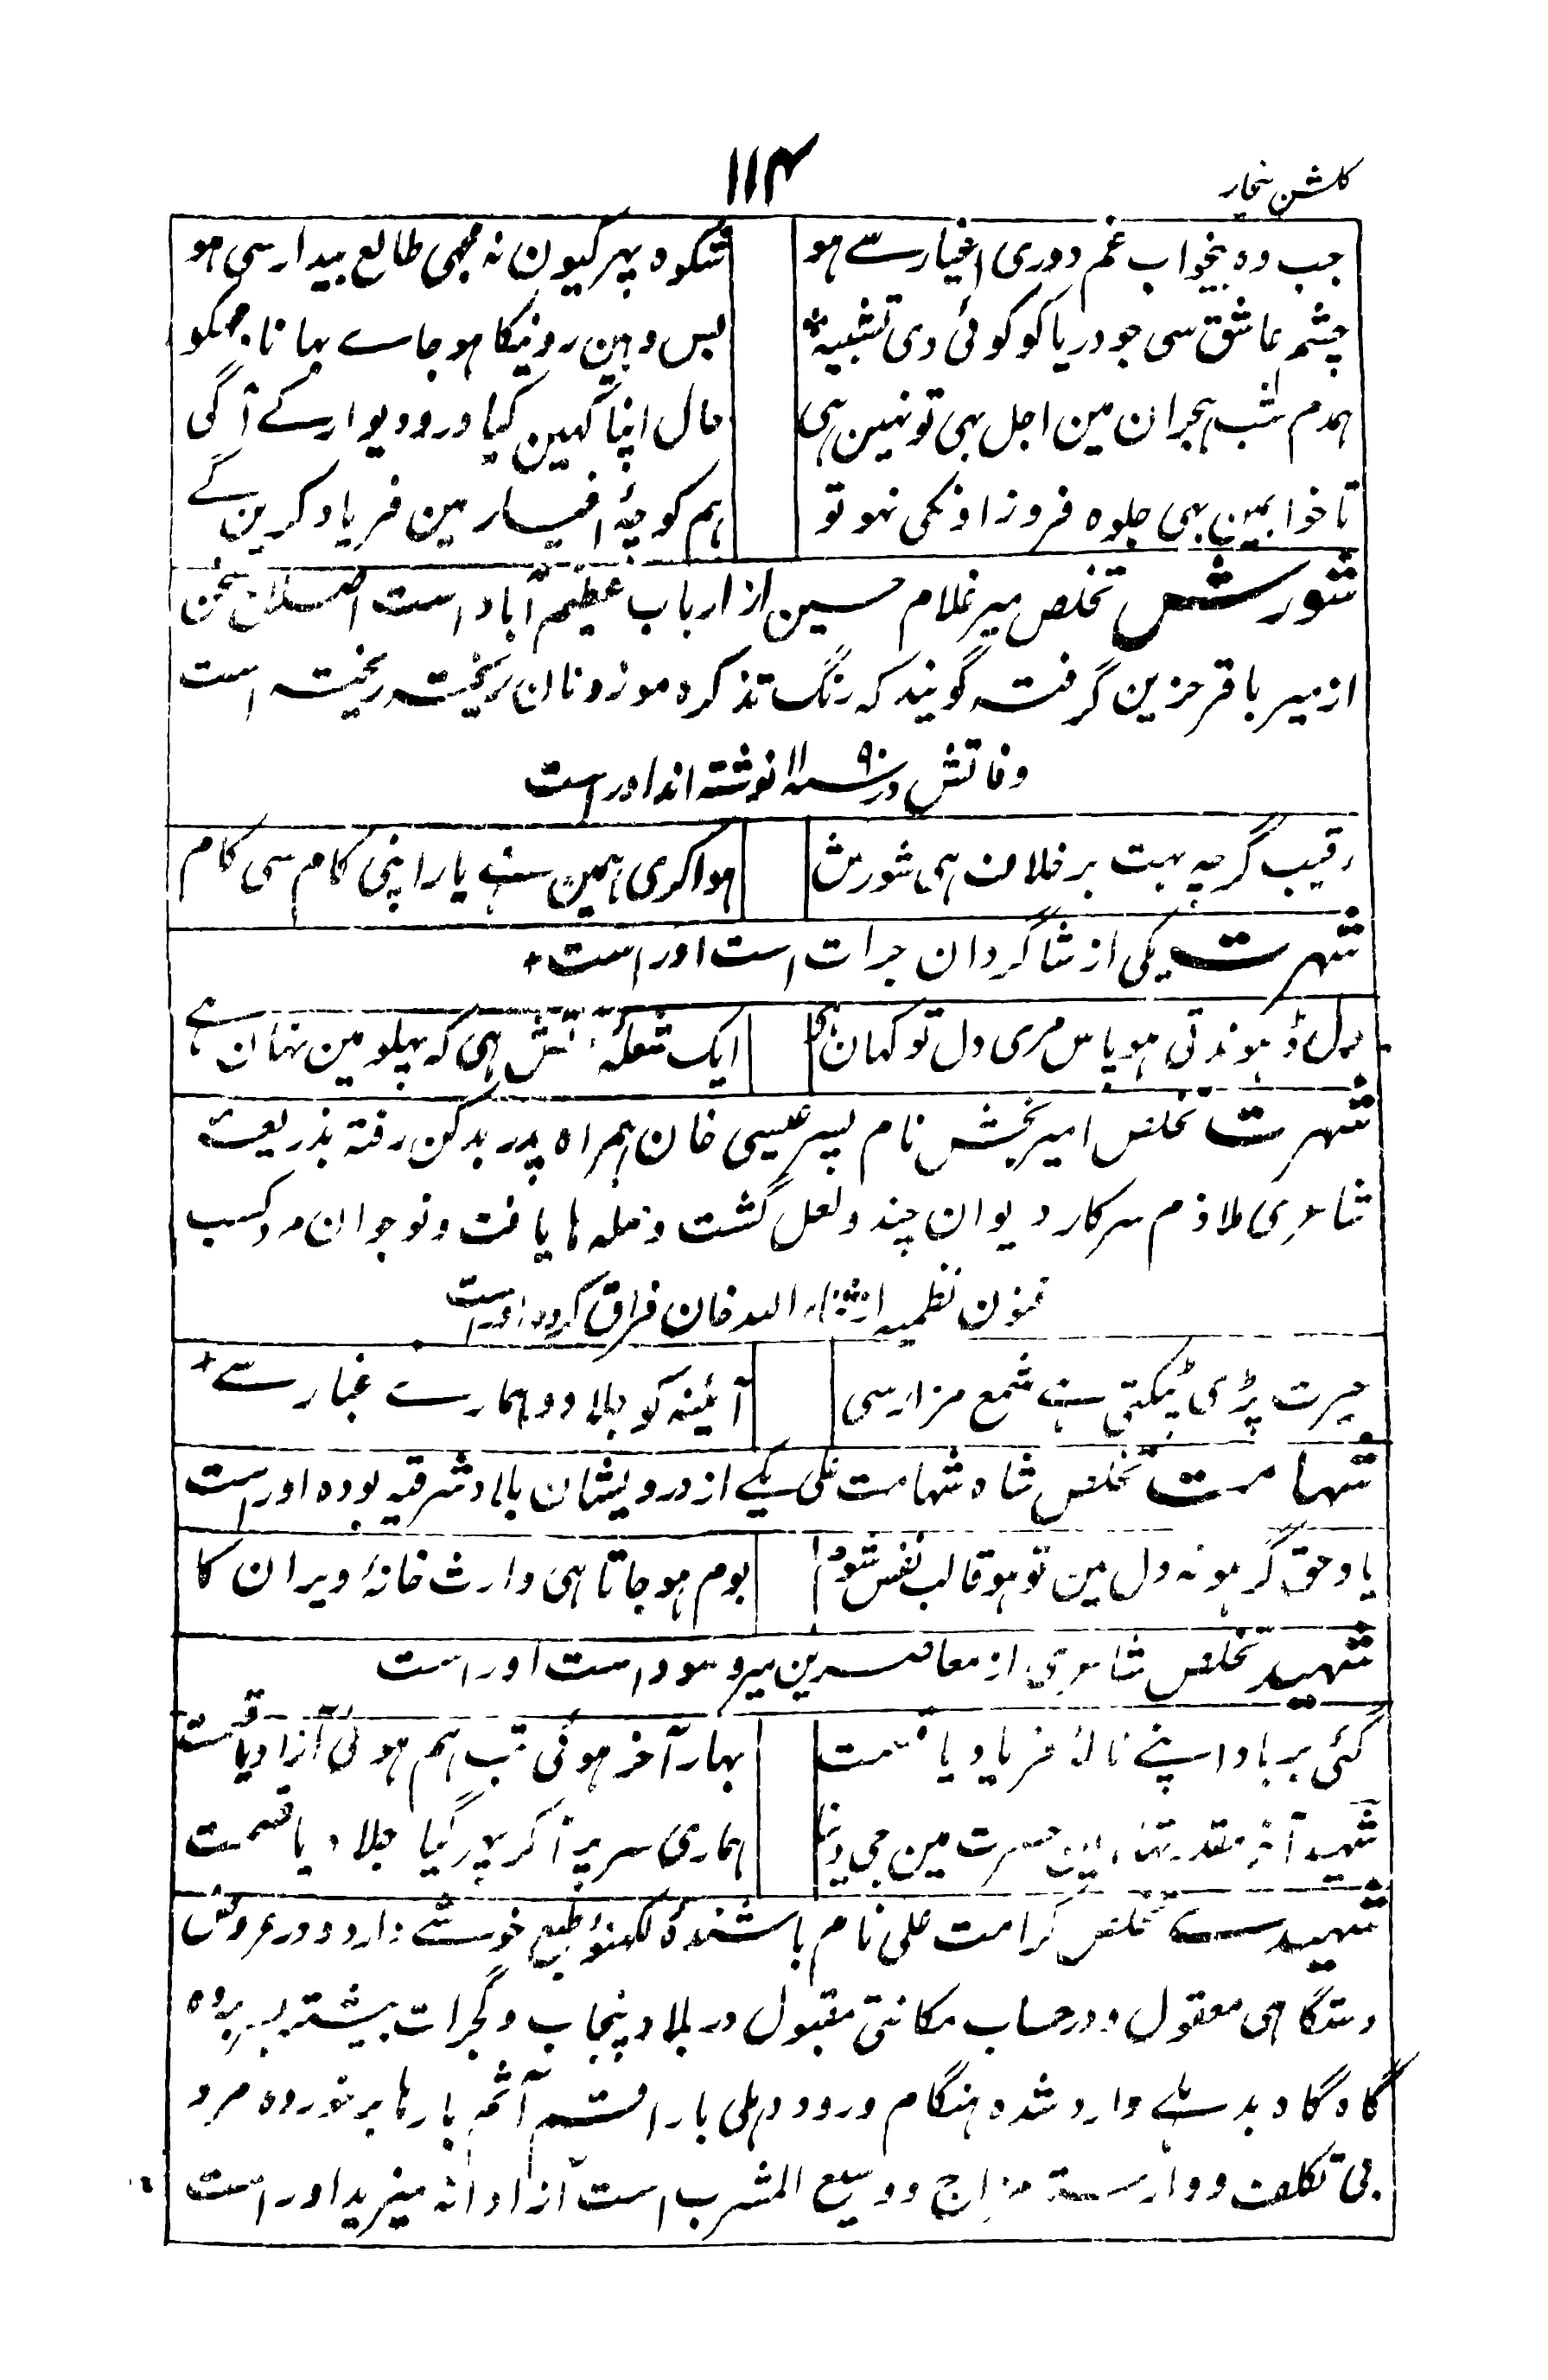 گلشن بیخار
۱۱۴
جب وہ بیخواب غم دوری اغیار سے ہو شکوہ پہر کیون نہ مجھی طالع بیدار سی ہو
چشم عاشق سی جو دریا کو کوئی دی تشبیہ بس وہین رونیکا ہو جاے بہانا مجھکو
ہمدم شب ہجران مین اجل بہی تو نہین ہی حال اپنا کہین کیا در و دیوار کے آگی
تا خوابمین بہی جلوہ فروز اونکی نہو تو ہم کوچۂ اغیار مین فریاد کرین گے
شورش تخلص میر غلام حسین از ارباب عظیم آباد است اصلاح سخن
از میر باقر حزین گرفتہ گویند کہ رنگ تذکرہ موزونان ریختہ ریختہ است
وفاتش در سنہ ۱۱۹۰ نوشتہ اند اوراست
رقیب گرچہ بہت برخلاف ہی شورش ہوا کری ہمین ہے یار اپنی کام سی کام
شہرت یکی از شاگردان جرات است اوراست
دل ڈہوندتی ہو پاس مری دل تو کہان ایک شعلۂ آتش ہی کہ پہلو مین نہان ہے
شہرت تخلص امیر بخش نام پسر عیسی خان ہمراہ پدر بدکن رفتہ بذریعۂ
شاعری ملازم سرکار دیوان چندولعل گشت و صلہ ہا یافت و نوجوان مرد کسب
فنون نظمیہ از ثناء اللہ خان فراق کردہ اوراست
حیرت پڑی ٹپکتی ہے شمع مزار سی آئینہ کو جلا دو ہمارے غبار سے
شہامت تخلص شاہ شہامت علی یکے از درویشان بلاد شرقیہ بودہ اوراست
یاد حق گر ہو نہ دل مین تو ہو قالب نفس شوم بوم ہو جاتا ہی وارث خانۂ ویران کا
شہید تخلص شاعری از معاصرین میر و سودا است اوراست
گئی برباد اپنے نالۂ فریاد یا قسمت بہار آخر ہوئی تب ہم ہوئی آزاد یا قسمت
شہید آخر مقدر تہا ہمین حسرت مین جی دینا ہماری سر پر آ کر پہر گیا جلاد یا قسمت
شہیدے تخلص کرامت علی نام باشندۂ لکہنؤ طبع خوشے دارد و در عروض
دستگاہی معقول و در حساب مکانتی مقبول در بلاد پنجاب و گجرات بیشتر بسر بردہ
گاہ گاہ بدہلی وارد شدہ ہنگام ورود دہلی بار اقم آثم بارہا برخوردہ مرد
بی تکلف و وارستہ مزاج و وسیع المشرب است آزادانہ میزید اوراست